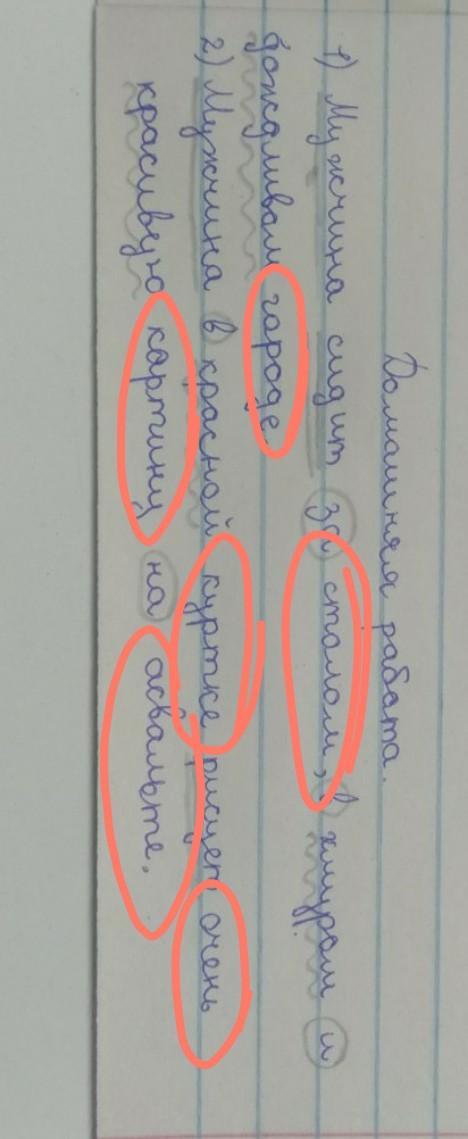 Домашняя работа.
1) Мужчина сидит за столом, в хмуром и
дождливом городе.
2) Мужчина в красной куртке рисует очень
красивую картину на асвальте.